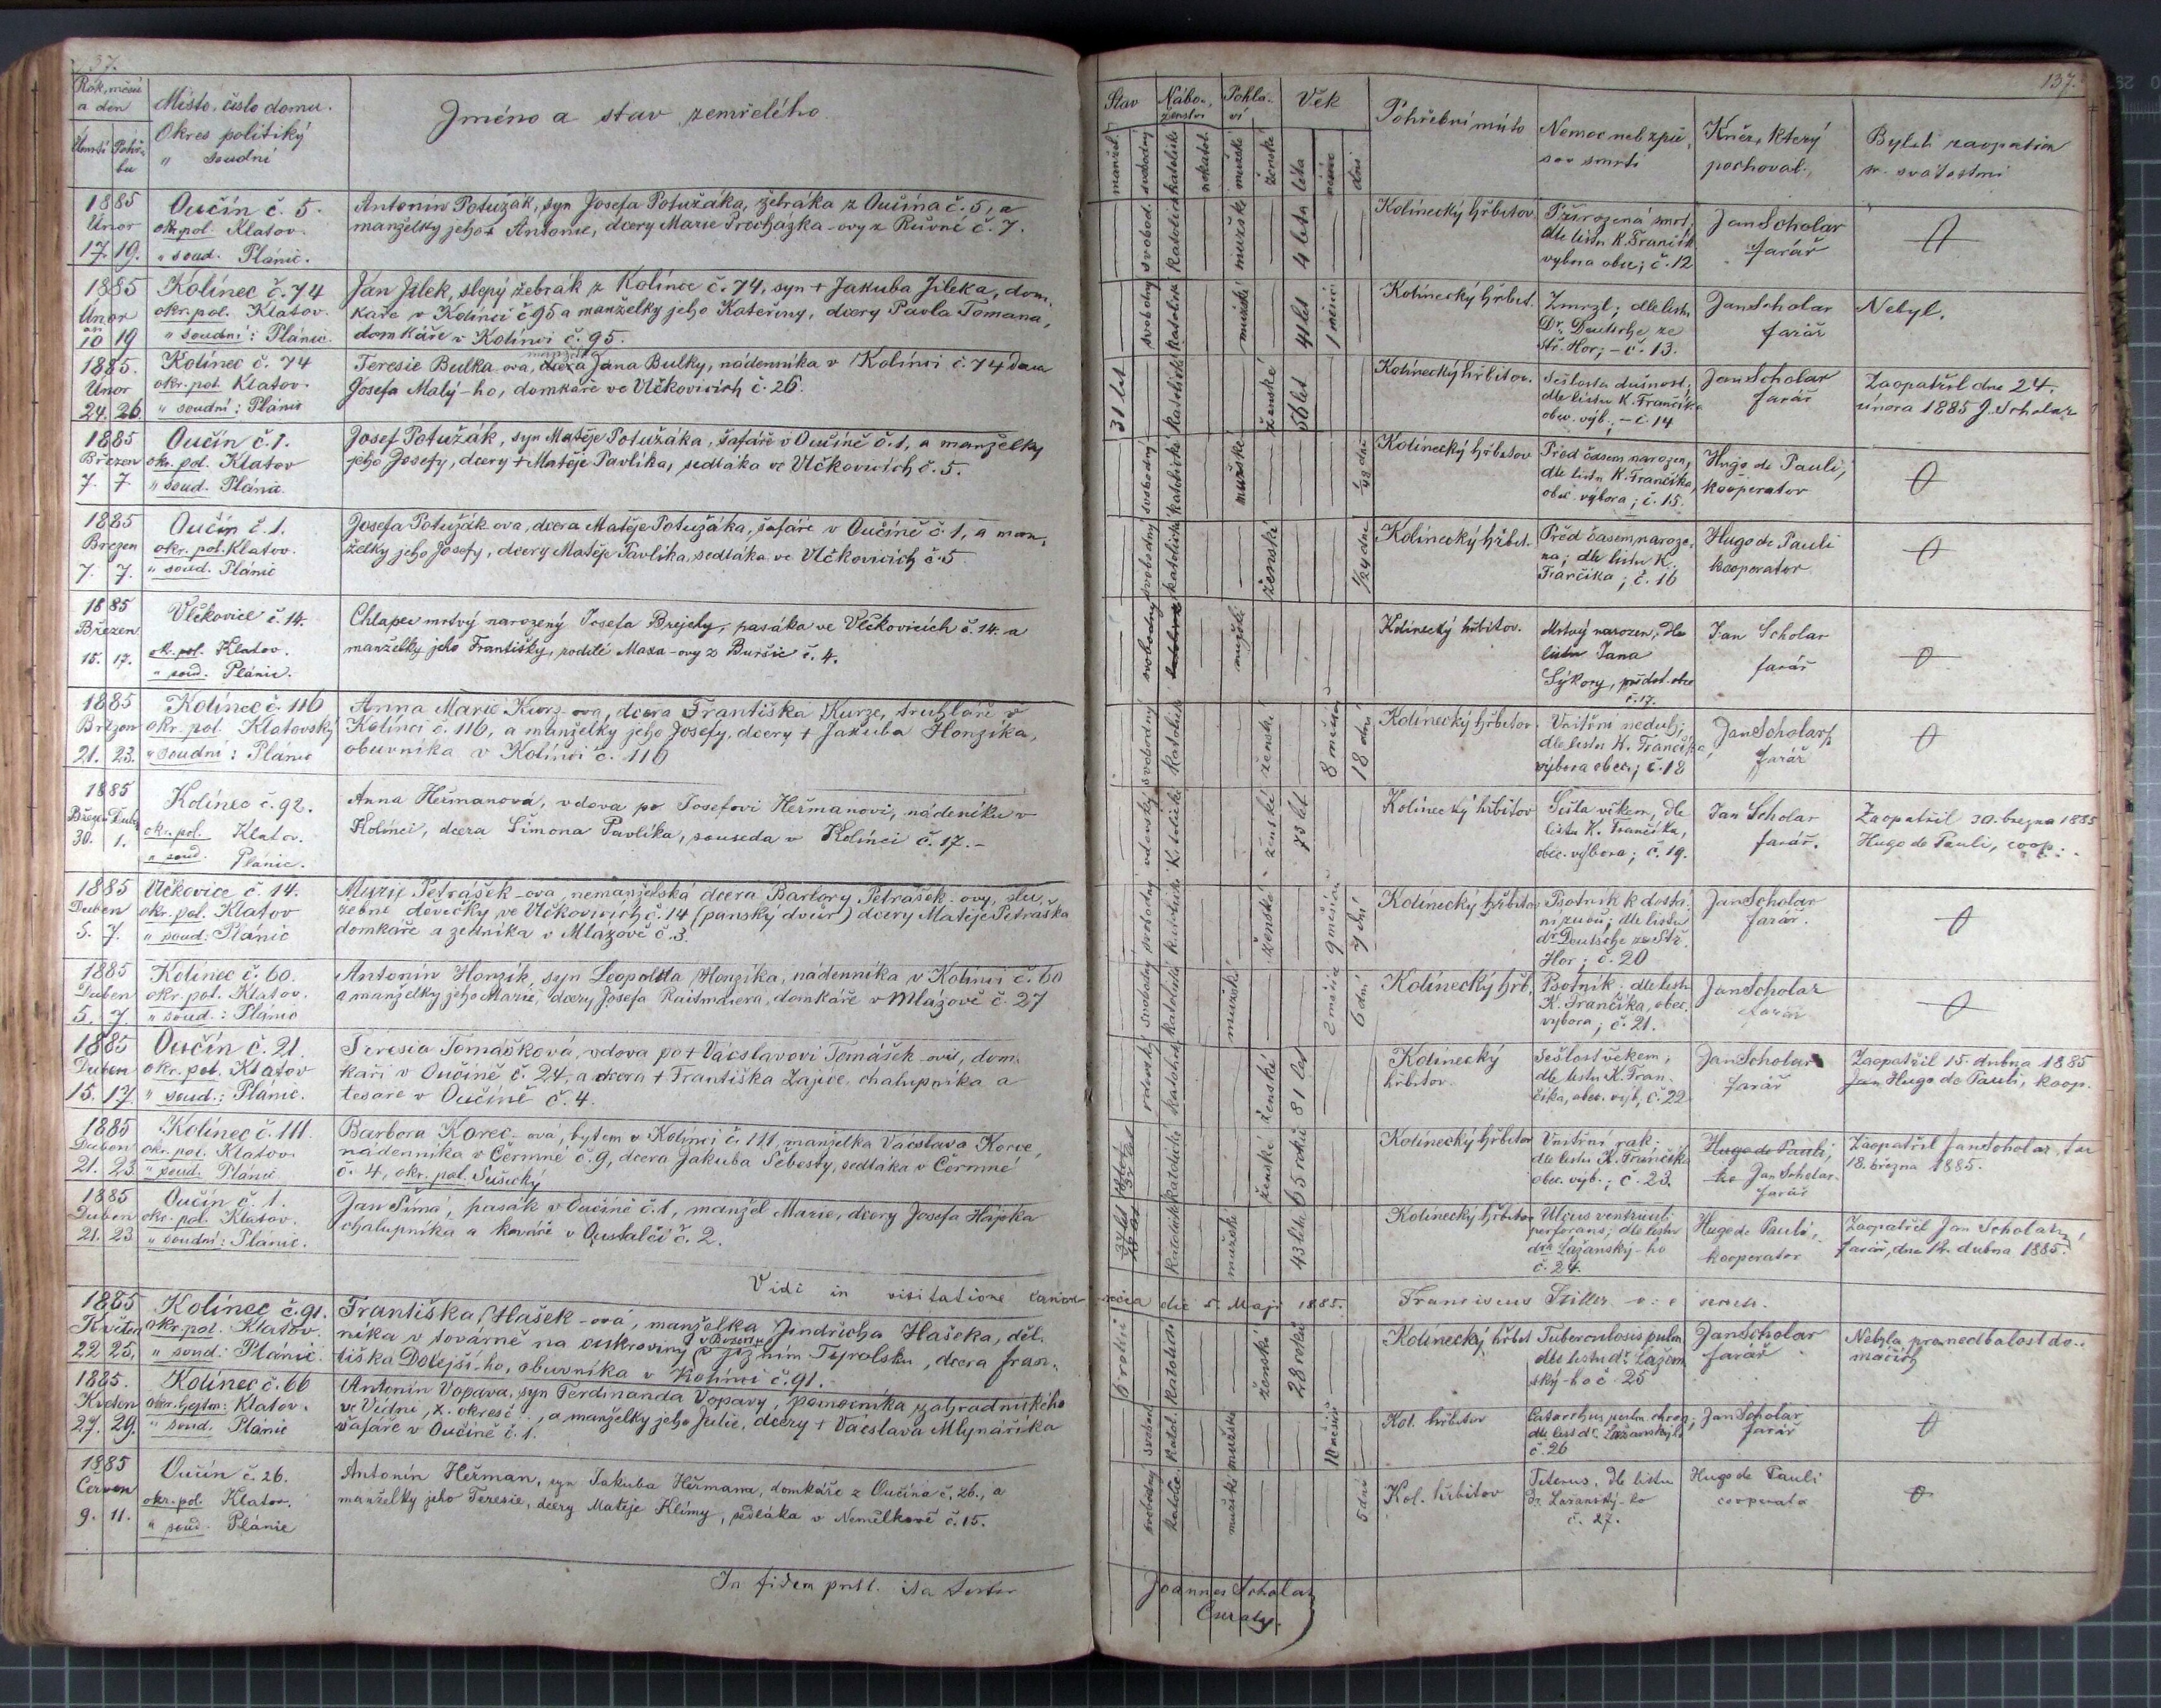 137.
Rok, měsíc
a den
Úmrtí Pohřbu
Místo, číslo domu.
Okres politiký
" soudní
Jméno a stav zemřelého
1885
Únor
17. 19.
Oučín č. 5.
ok. pol. Klatov.
" soud. Plánic.
Antonín Potužák, syn Josefa Potužáka, žebráka z Oučína č. 5, a
manželky jeho Antonie, dcery Marie Procházka-ovy z Ruvné č. 7.
1885
Únor
10 19
Kolínec č. 74
okr. pol. Klatov.
" soudní: Plánic.
Jan Jílek, slepý žebrák z Kolince č. 74, syn + Jakuba Jíleka, dom-
káře v Kolinci č 95 a manželky jeho Kateřiny, dcery Pavla Tomana,
domkáře v Kolinci č. 95.
1885.
Únor
24. 26
Kolínec č. 74
okr. pol. Klatov.
" soudní: Plánic
manželka
Teresie Bulka-ova, dcera Jana Bulky, nádenníka v Kolinci č. 74 dcera
Josefa Malý-ho, domkáře ve Vlčkovicích č. 26.
1885
Březen
7. 7.
Oučín č. 1.
okr. pol. Klatov
" soud. Plánic.
Josef Potužák, syn Matěje Potužáka, šafáře v Oučíně č. 1, a manželky
jeho Josefy, dcery + Matěje Pavlíka, sedláka ve Vlčkovicích č. 5.
1885
Březen
7. 7.
Oučín č. 1.
okr. pol. Klatov.
" soud. Plánic
Josefa Potužák ova, dcera Matěje Potužáka, šafáře v Oučíně č. 1, a man-
želky jeho Josefy, dcery Matěje Pavlíka, sedláka ve Vlčkovicích č. 5
1885
Březen
15. 17.
Vlčkovice č. 14.
ok. pol. Klatov.
" soud. Plánic.
Chlapec mrtvý narozený Josefa Brejchy, pasáka ve Vlčkovicích č. 14. a
manželky jeho Františky, rodilé Maxa-ovy z Buršic č. 4.
1885
Březen
21. 23.
Kolínec č. 116
okr. pol. Klatovský
" soudní: Plánic
Anna Marie Kurz-ova, dcera Františka Kurze, truhláře v
Kolínci č. 116, a manželky jeho Josefy, dcery + Jakuba Honzíka,
obuvníka v Kolínci č. 116
1885
Březen Dub.
30. 1.
Kolínec č. 92.
okr. pol. Klatov.
" soud. Plánic.
Anna Heřmanová, vdova po Josefovi Heřmanovi, nádeníku v
Kolinci, dcera Šimona Pavlíka, souseda v Kolinci č. 17. -
1885
Duben
5. 7.
Vlčkovice č. 14.
okr. pol. Klatov
" soud: Plánic
Marie Petrášek-ova, nemanželská dcera Barbory Petrášek-ovy, slu-
žebné děvečky ve Vlčkovicích č. 14 (panský dvůr) dcery Matěje Petraška
domkáře a zedníka v Mlazově č. 3.
1885
Duben
5. 7.
Kolínec č. 60.
okr. pol. Klatov.
" soud.: Plánic
Antonín Honzík, syn Leopolda Honzíka, nádenníka v Kolinci č. 60
a manželky jeho Marie, dcery Josefa Raismaiera, domkáře v Mlazově č. 27
1885
Duben
15. 17.
Oučín č. 21.
okr. pol. Klatov
" soud.: Plánic.
Teresia Tomášková, vdova po + Vácslavovi Tomášek-ovi, dom-
káři v Oučíně č. 24, a dcera + Františka Zajíce, chalupníka a
tesaře v Oučíně č. 4.
1885
Duben
21. 23
Kolínec č. 111.
okr. pol. Klatov
" soud: Plánic
Barbora Korec-ová, bytem v Kolinci č. 111, manželka Vácslava Korce,
nádenníka v Čermné č. 9, dcera Jakuba Šebesty, sedláka v Čermné
č. 4, okr. pol. Sušický
1885
Duben
21. 23
Oučín č. 1.
okr. pol. Klatov.
" soudní: Plánic.
Jan Šíma, pasák v Oučíně č. 1, manžel Marie, dcery Josefa Hájka
chalupníka a kováře v Oustalči č. 2.
Vidi in visitatione canonica die 5. Maji 1885. Franciscus
1885
Květen
22. 25.
Kolínec č. 91.
okr. pol. Klatov.
" soud: Plánic.
Františka Hašek-ová, manželka Jindřicha Hašeka, děl-
níka v továrně na cukroviny v jižním Tyrolsku, dcera Fran-
tiška Dolejší-ho, obuvníka v Kolinci č. 91.
1885.
Květen
27. 29.
Kolínec č. 66
okr. hejtm: Klatov.
" soud. Plánic
Antonín Vopava, syn Ferdinanda Vopavy, pomocníka zahradnického
ve Vídni, X. okres č. , a manželky jeho Julie, dcery + Vácslava Mlynáříka
šafáře v Oučíně č. 1.
1885
Červen
9. 11.
Oučín č. 26.
okr. pol. Klatov.
" soud. Plánic
Antonín Heřman, syn Jakuba Heřmana, domkáře z Oučína č. 26., a
manželky jeho Teresie, dcery Matěje Klímy, sedláka v Nemilkově č. 15.
In fidem
137.
Stav Nábo-ženství Pohla-ví Věk
manžel. svobodný katolické nekatol. mužské ženské léta měsíce dní
Pohřební místo
Nemoc neb způ-
sob smrti
Kněz, který
pochoval.
Byl-li zaopatřen
sv. svátostmi
svobod. katolické mužské 4 léta
Kolínecký hřbitov
Přirozená smrt;
dle listu K. Frančík
výbora obec; č. 12
Jan Scholar
farář
svobodný katolické mužské 41 let 1 měsíc
Kolínecký hřbit.
Zmrzl; dle listu
Dr. Deutsche ze
Stř. Hor; - č. 13.
Jan Scholar
farář
Nebyl.
31 let katolické ženské 56 let
Kolínecký hřbitov.
Sešlosta dušnost;
dle listu K. Frančíka
obec. výb.; - č. 14
Jan Scholar
farář
Zaopatřil dne 24.
února 1885 J. Scholar
svobodný katolické mužské 1/2 dne
Kolínecký hřbitov
Před časem narozen,
dle listu K. Frančíka,
obec. výbora; č. 15.
Hugo de Pauli,
kooperator
svobodný katolické ženské
Kolínecký hřbit.
Před časem naroze-
na; dle listu K.
Frančíka; č. 16
Hugo de Pauli
kooperator
svobodný mužské
Kolínecký hřbitov.
Mrtvý narozen, dle
listu Jana
Sýkory, představ. obce
č. 17.
Jan Scholar
farář
svobodný katolické ženské 8 měsíců 18 dní
Kolínecký hřbitov
Vnitřní neduh;
dle listu K. Frančíka,
výbora obec.; č. 18
Jan Scholar
farář
vdovský katolické ženské 73 let
Kolínecký hřbitov
Sešla věkem, dle
listu K. Frančíka,
obec. výbora; č. 19.
Jan Scholar
farář.
Zaopatřil 30. března 1885
Hugo de Pauli, coop.
svobodný katolické ženské 9 měsíců 7 dní
Kolínecký hřbitov
Psotník k dostá-
ní zubů; dle listu
dr. Deutsche ze Stř.
Hor; č. 20
Jan Scholar
farář.
svobodný katolické mužské 2 měsíce 6 dní
Kolínecký hřb.
Psotník; dle listu
K. Frančíka, obec.
výbora; č. 21.
Jan Scholar
farář
vdovský katolické ženské 81 let
Kolínecký
hřbitov.
Sešlost věkem;
dle listu K. Fran-
číka, obec. výb, č. 22
Jan Scholar
farář
Zaopatřil 15. dubna 1885
Hugo de Pauli, koop.
katolické ženské 65 roků
Kolínecký hřbitov
Vnitřní rak;
dle listu K. Frančíka
obec. výb.; č. 23.
Hugo de Pauli,
Jan Scholar
farář
Zaopatřil Jan Scholar, far
18. března 1885.
katolické mužské 43 léta
Kolínecký hřbitov
Ulcus ventriculi
perforans; dle listu
dra Lažanský-ho
č. 24.
Hugo de Pauli,
kooperator
Zaopatřil Jan Scholar,
farář, dne 12. dubna 1885.
6 roků katolické ženské 28 roků
Kolínecký hřbit
Tuberculosis pulm
dle listu dr. Lažan-
ský-ho č. 25
Jan Scholar
farář
Nebyla pro nedbalost do-
mácích
svobod. katol. mužské
Kol. hřbitov
Catarrhus pulm. chron;
dle list dr. Lažanský-ho
č. 26
Jan Scholar
farář
svobodný katolic. mužské 5 dní
Kol. hřbitov
Tetanus, dle listu
Dr. Lažanský-ho
č. 27.
Hugo de Pauli
cooperator
Joannes Scholar
Curatus.